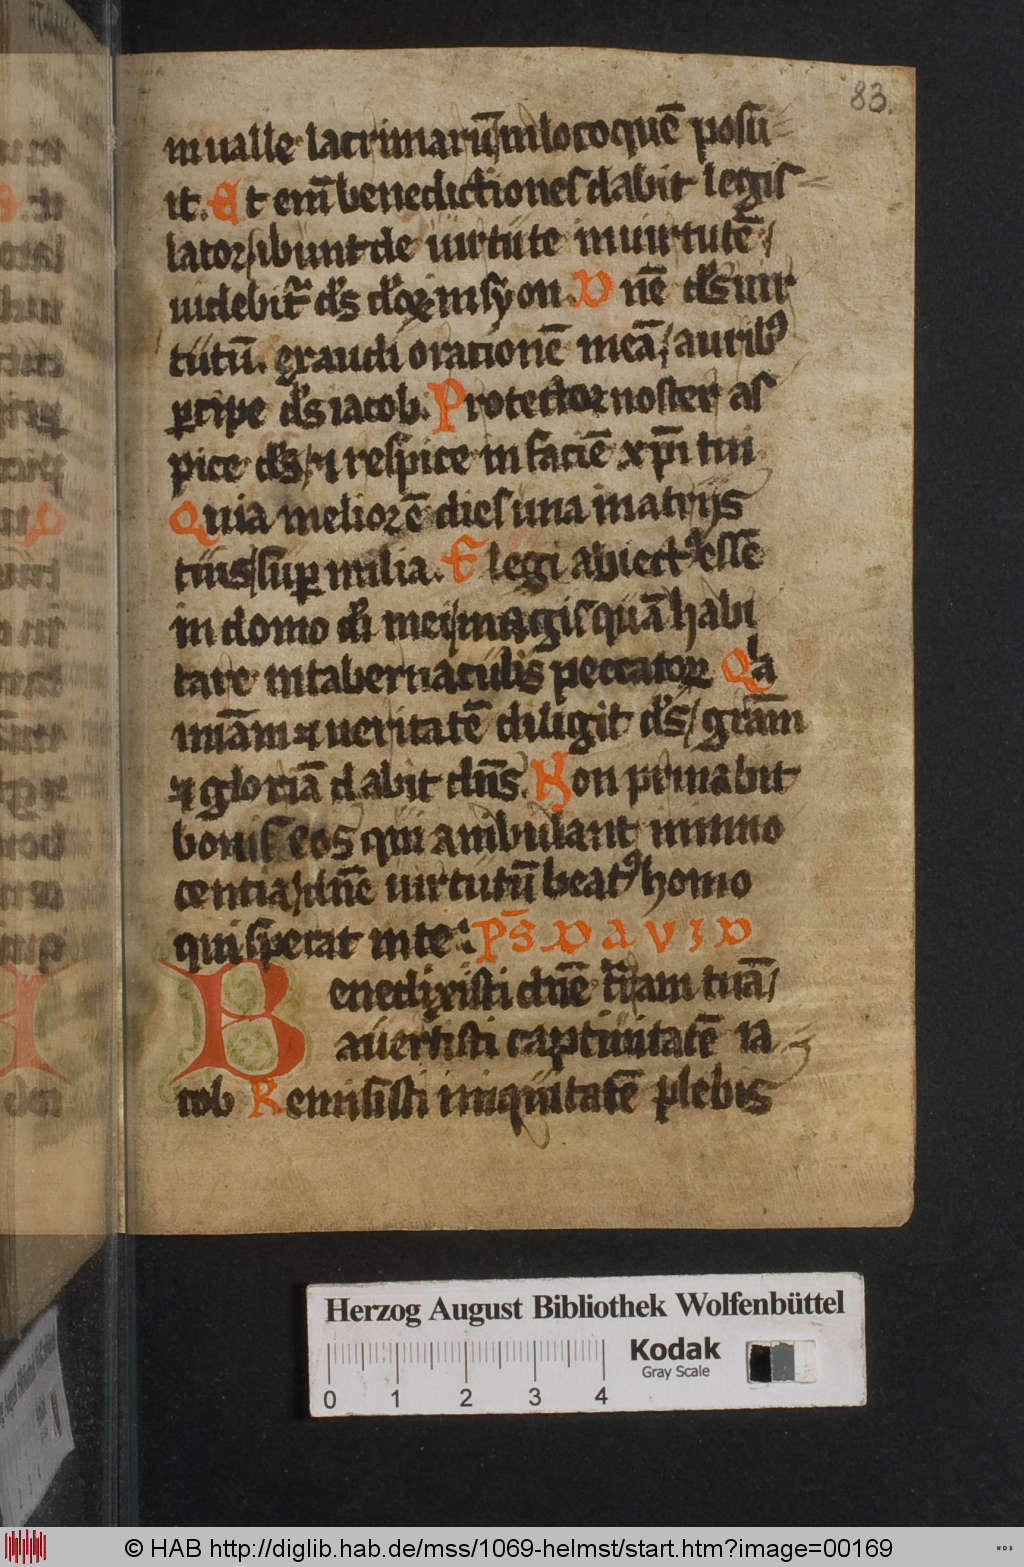 83.
in ualle lacrimarū in loco quē posu
it. Et enī benedictiones dabit legis
lator/ ibunt de uirtute in uirtutē/
uidebit᷑ ds̄ deoꝝ in syon. Dn̄e ds̄ uir
tutū. exaudi orationē meā/ auribꝰ
ꝑcipe ds̄ iacob. Protector noster as
pice ds̄/ ⁊ respice in faciē xp̄i tui
Quia melior ē dies una in atrijs
tuis/ suꝑ milia. Elegi abiectꝰ essē
in domo dī mei/ magis quā habi
tare in tabernaculis peccatoꝝ Qa
miām ⁊ ueritatē diligit ds̄/ grām
⁊ gloriā dabit dn̄s. Non priuabit
bonis eos qui ambulant in inno
centia/ dn̄e uirtutū beatꝰ homo
qui sperat in te. Ps̄ DAVID
Benedixisti dn̄e trām tuā/
auertisti captiuitatē ia
cob Remisisti iniquitatē plebis
Herzog August Bibliothek Wolfenbüttel
Kodak
Gray Scale
0 1 2 3 4
© HAB http://diglib.hab.de/mss/1069-helmst/start.htm?image=00169